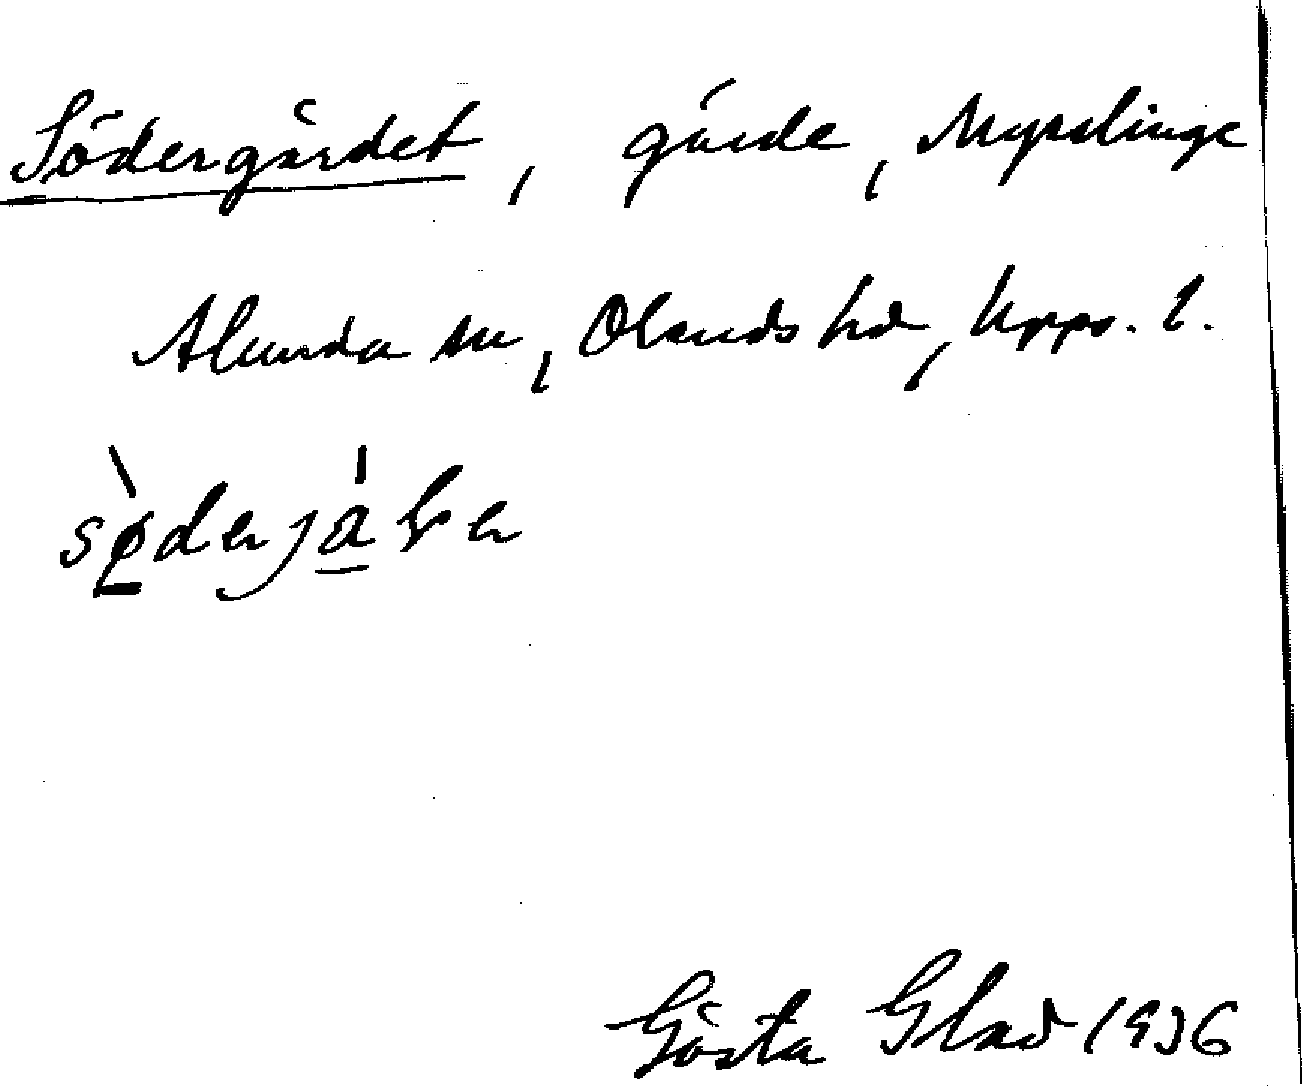 Södergärdet, gärde, Myrslinge
Alunda sn, Olands hd, Upps. l.
Gösta Glad 1936